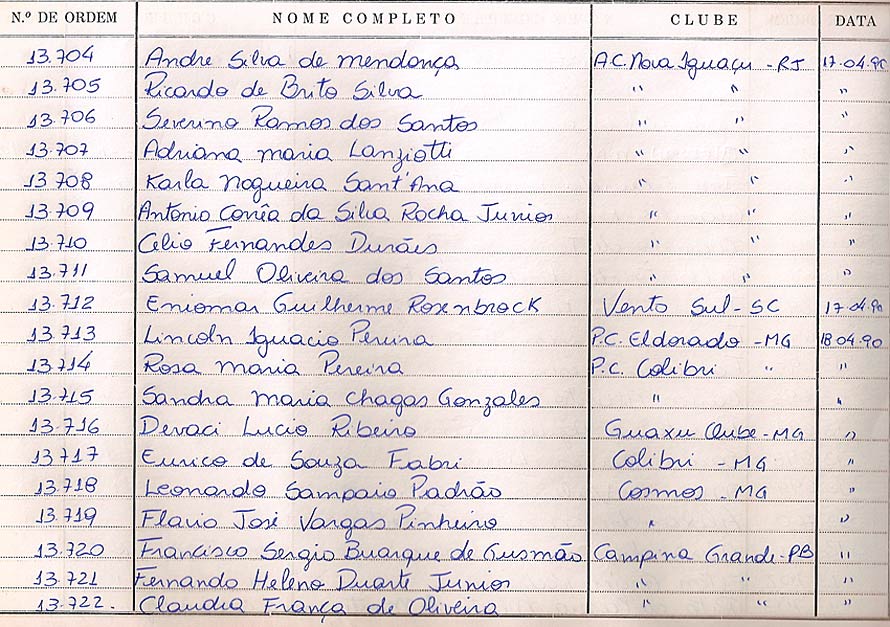 N.º DE ORDEM NOME COMPLETO CLUBE DATA
13.704 Andre Silva de mendonça A.C. Nova Iguaçu - RJ 17.04.90
13.705 Ricardo de Brito Silva " " "
13.706 Severino Ramos dos Santos " " "
13.707 Adriana maria Lanziotti " " "
13.708 Karla nogueira Sant'Ana " " "
13.709 Antonio Corrêa da Silva Rocha Junior " " "
13.710 Celio Fernandes Durães " " "
13.711 Samuel Oliveira dos Santos " " "
13.712 Eniomar Guilherme Rosenbrock Vento Sul - SC 17.04.90
13.713 Lincoln Iguacio Pereira P.C. Eldorado - MG 18.04.90
13.714 Rosa maria Pereira P.C. Colibri " "
13.715 Sandra maria Chagas Gonzales " "
13.716 Devaci Lucio Ribeiro Guaxu Clube - MG "
13.717 Eurico de Souza Fabri Colibri - MG "
13.718 Leonardo Sampaio Padrão Cosmos - MG "
13.719 Flavio José Vargas Pinheiro " "
13.720 Francisco Sergio Buarque de Gusmão Campina Grande - PB "
13.721 Fernando Heleno Duarte Junior " " "
13.722. Claudia França de Oliveira " " "